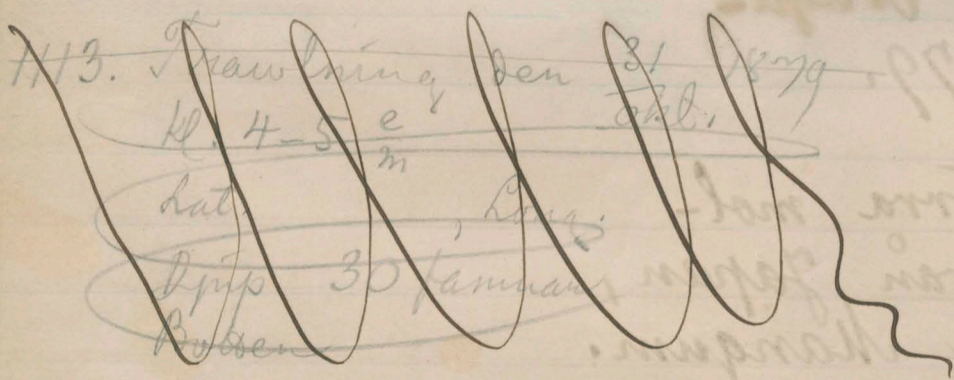 1113. Trawlning den 31/Okt. 1879
Kl. 4-5 e/m
Lat. , Long.
Djup 30 famnar
Botten